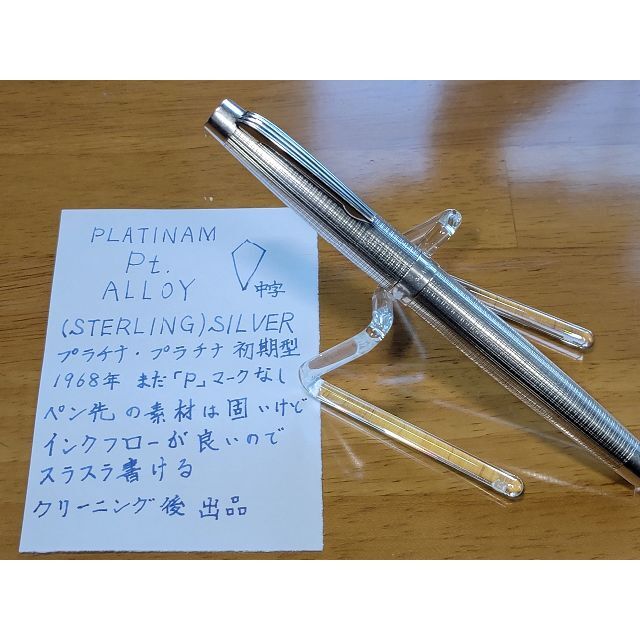 PLATINAM
Pt.
ALLOY
中字
(STERLING)SILVER
プラチナ・プラチナ 初期型
1968年 まだ「P」マークなし
ペン先の素材は固いけど
インクフローが良いので
スラスラ書ける
クリーニング後 出品